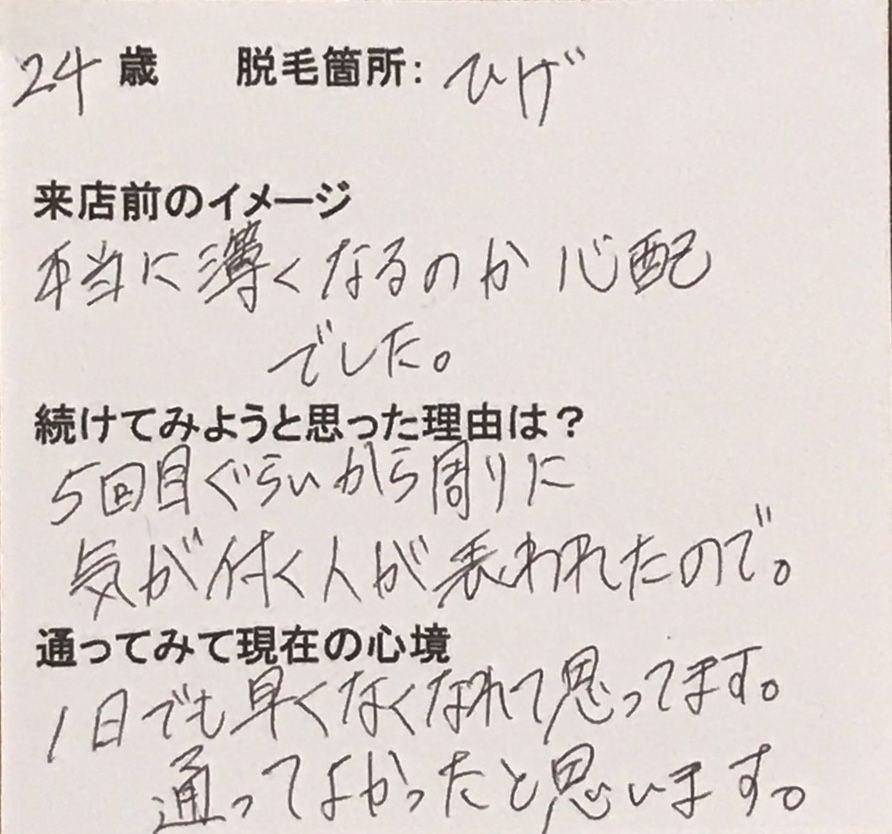 24歳 脱毛箇所: ひげ
来店前のイメージ
本当に薄くなるのか心配
でした。
続けてみようと思った理由は?
5回目ぐらいから周りに
気が付く人が表われたので。
通ってみて現在の心境
1日でも早くなくなれて思ってます。
通ってよかったと思います。